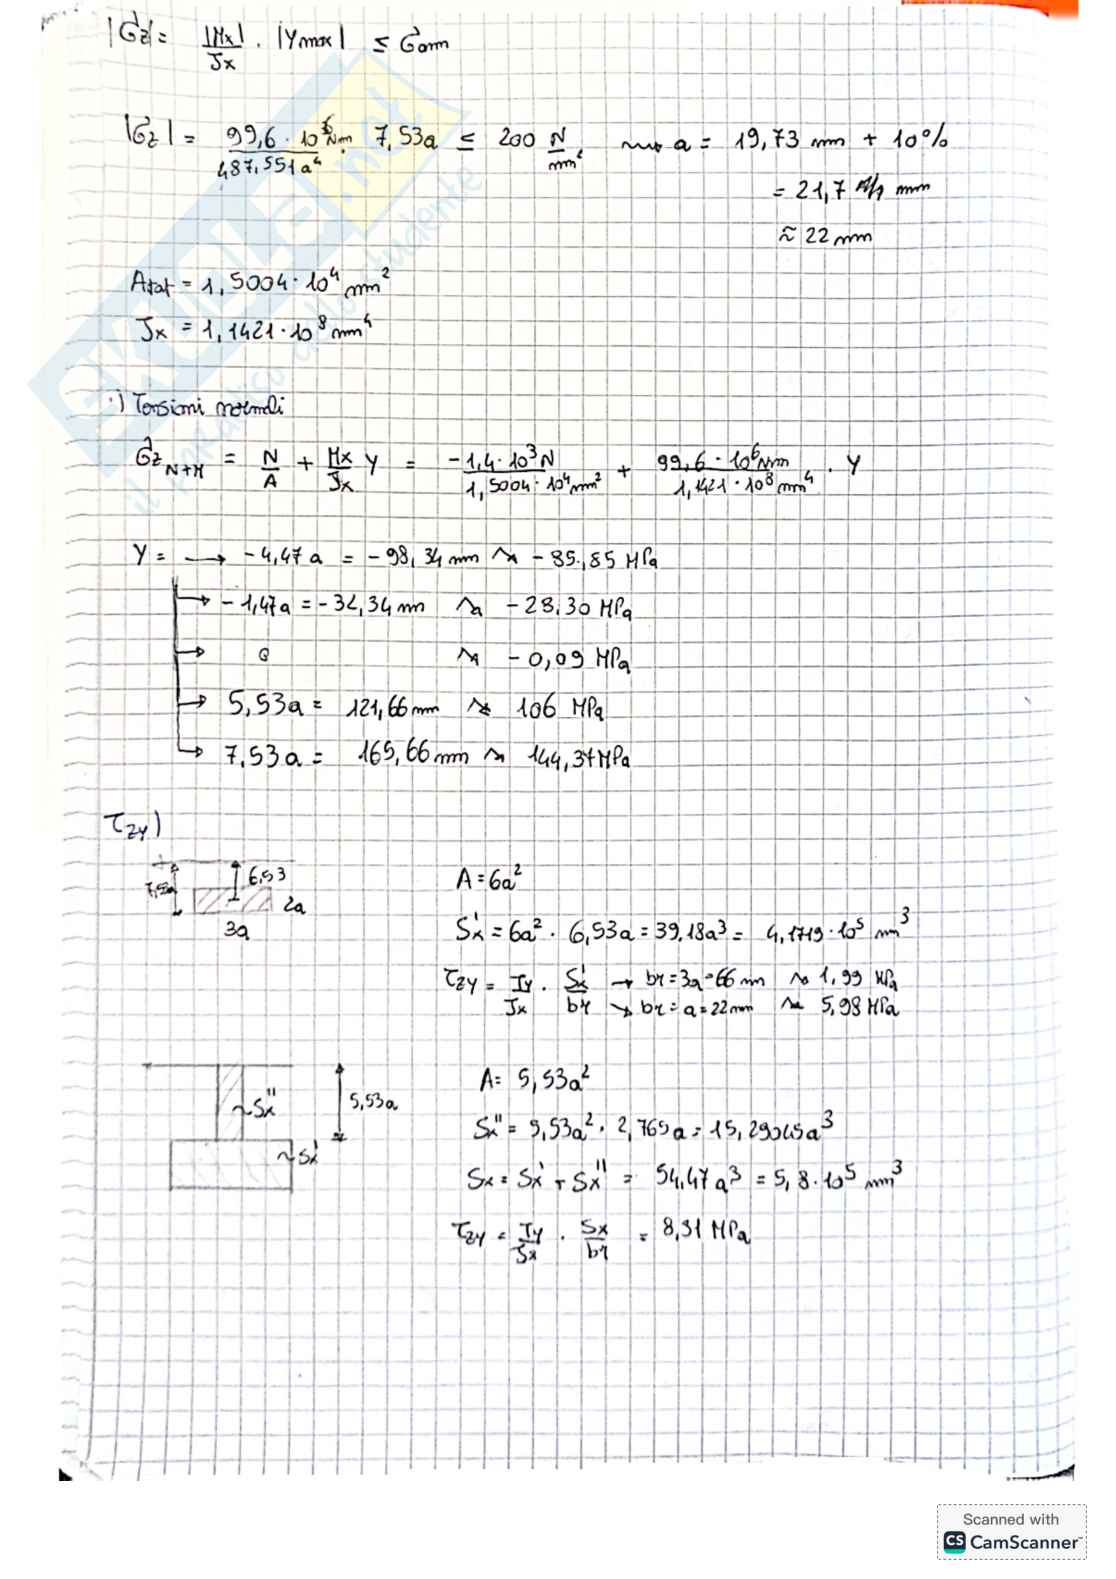 |σz| = |Mx|/Jx · |Ymax| ≤ σam
|σz| = 99,6 · 10⁶ Nm/487,551a⁴ · 7,53a ≤ 200 N/mm² ⇝ a = 19,73 mm + 10%
= 21,7 mm
≈ 22 mm
Atot = 1,5004 · 10⁴ mm²
Jx = 1,1421 · 10⁸ mm⁴
·) Tensioni normali
σz N+M = N/A + Mx/Jx Y = -1,4 · 10³ N/1,5004 · 10⁴ mm² + 99,6 · 10⁶ Nmm/1,1421 · 10⁸ mm⁴ · Y
Y = → -4,47a = -98,34 mm ⇝ -85,85 MPa
→ -1,47a = -32,34 mm ⇝ -28.30 MPa
→ 0 ⇝ -0,09 MPa
→ 5,53a = 121,66 mm ⇝ 106 MPa
→ 7,53a = 165,66 mm ⇝ 144,37 MPa
τzy)
7,53a
6,53
2a
3a
A = 6a²
Sx' = 6a² · 6,53a = 39.18a³ = 4,1719 · 10⁵ mm³
τzy = Ty/Jx · Sx'/br → br = 3a = 66 mm ⇝ 1,99 MPa
→ br = a = 22 mm ⇝ 5,98 MPa
Sx''
5,53a
Sx'
A = 5,53a²
Sx'' = 5,53a² · 2,765a = 15,29045a³
Sx = Sx' + Sx'' = 54,47a³ = 5,8 · 10⁵ mm³
τzy = Ty/Jx · Sx/br = 8,31 MPa
skuola.net
il paradiso dello studente
Scanned with
CS CamScanner